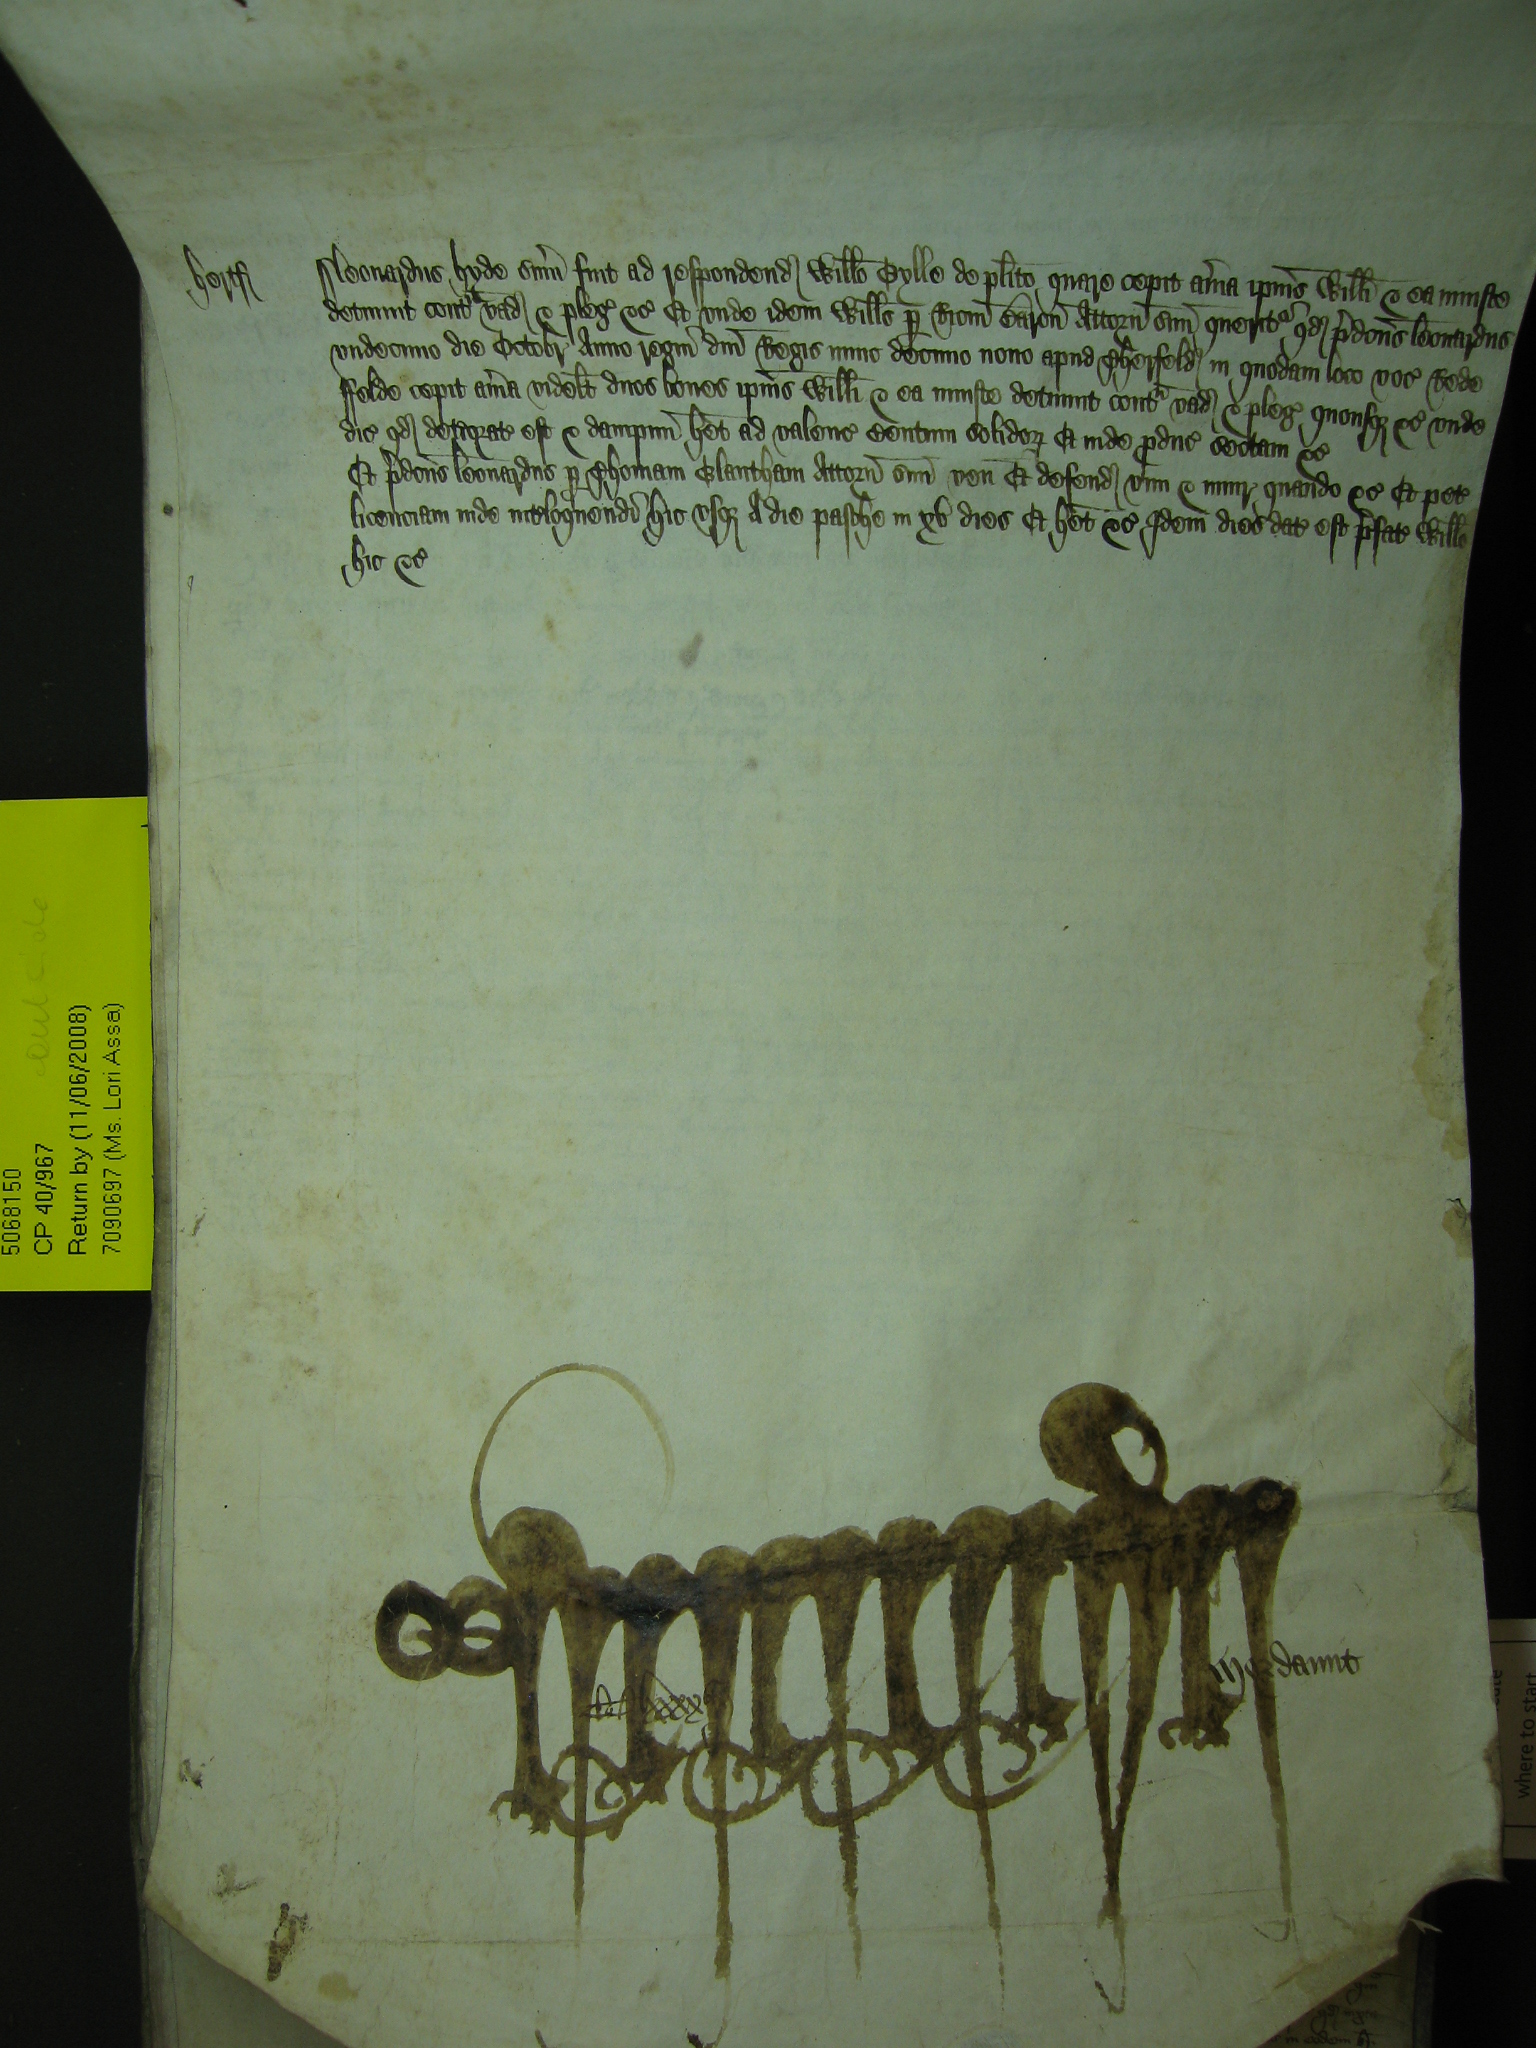 hertf
Leonardus hyde sum̄ fuit ad respondend Willo Tylle de plito quare cepit aũia ipius Willi & ea iniuste
detinuit contᵃ vad & pleg &c Et unde idem Wills p Ricm Baron Attorn suu queritᵘʳ qd p̄dcus Leonardus
undecimo die Octobr Anno regni dni Regis nunc decimo nono apud Therfeld in quodam loco voc Rede
ffelde cepit aũia videlt duos boves ipius Willi & ea iniuste detinuit contᵃ vad & pleg quousq &c unde
dic qd deteriorat est & dampnu het ad valenc Centum solidor Et inde pduc sectam &c
Et p̄dcus Leonardus p Thomam Clantham Attorn suu ven Et defend vim & iniur quando &c Et pet
licenciam inde intloquendi hic usq A die pasche in xv dies Et het &c Idem dies dat est p̄fat Willo
hic &c
Mordaunt
5068150
CP 40/967
Return by (11/06/2008)
7090697 (Ms. Lori Assa)
where to start